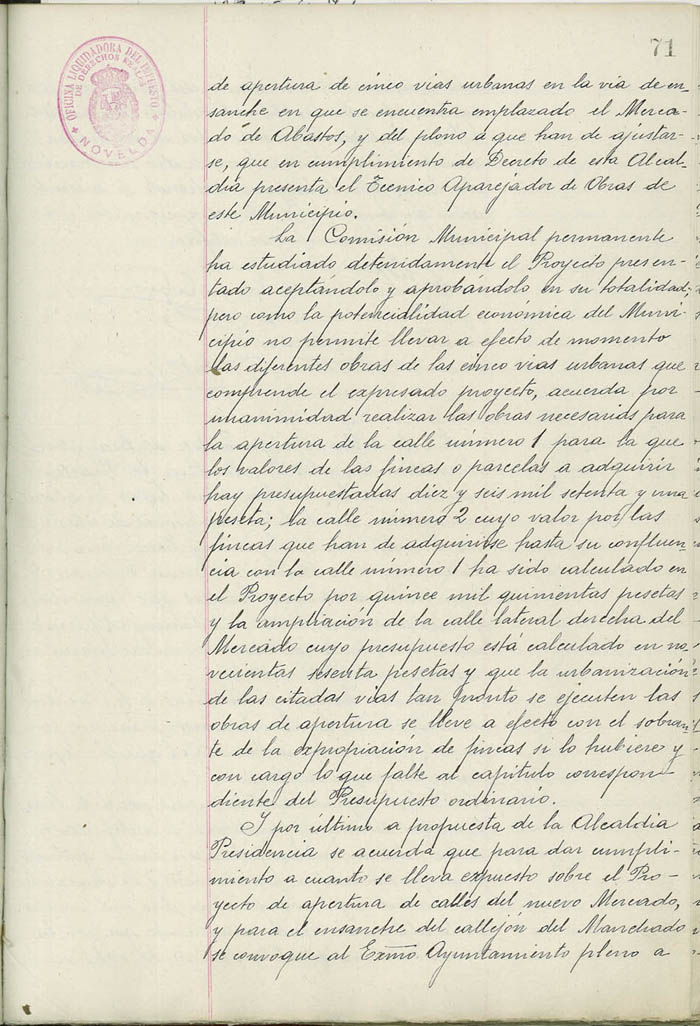 71
OFICINA LIQUIDADORA DEL IMPUESTO
DE DERECHOS REALES
NOVELDA
de apertura de cinco vias urbanas en la via de en
sanche en que se encuentra emplazado el Merca-
do de Abastos, y del plono a que han de ajustar-
se, que en cumplimiento de Decreto de esta Alcal-
dia presenta el Tecnico Aparejador de Obras de
este Municipio.
La Comisión Municipal permanente
ha estudiado detenidamente el Proyecto presen-
tado aceptándolo y aprobándolo en su totalidad;
pero como la potencialidad económica del Muni-
cipio no permite llevar a efecto de momento
las diferentes obras de las cinco vias urbanas que
comprende el expresado proyecto, acuerda por
unanimidad realizar las obras necesarias para
la apertura de la calle número 1 para la que
los valores de las fincas o parcelas a adquirir
hay presupuestadas diez y seis mil setenta y una
peseta; la calle número 2 cuyo valor por las
fincas que han de adquirirse hasta su confluen-
cia con la calle número 1 ha sido calculado en
el Proyecto por quince mil quinientas pesetas
y la ampliación de la calle lateral derecha del
Mercado cuyo presupuesto está calculado en no-
vecientas sesenta pesetas y que la urbanización
de las citadas vias tan pronto se ejecuten las
obras de apertura se lleve a efecto con el sobran-
te de la expropiación de fincas si lo hubiere y
con cargo lo que falte al capitulo correspon-
diente del Presupuesto ordinario.
Y por último a propuesta de la Alcaldia
Presidencia se acuerda que para dar cumpli-
miento a cuanto se lleva expuesto sobre el Pro-
yecto de apertura de calles del nuevo Mercado,
y para el ensanche del callejón del Manchado
se convoque al Exmo Ayuntamiento pleno a